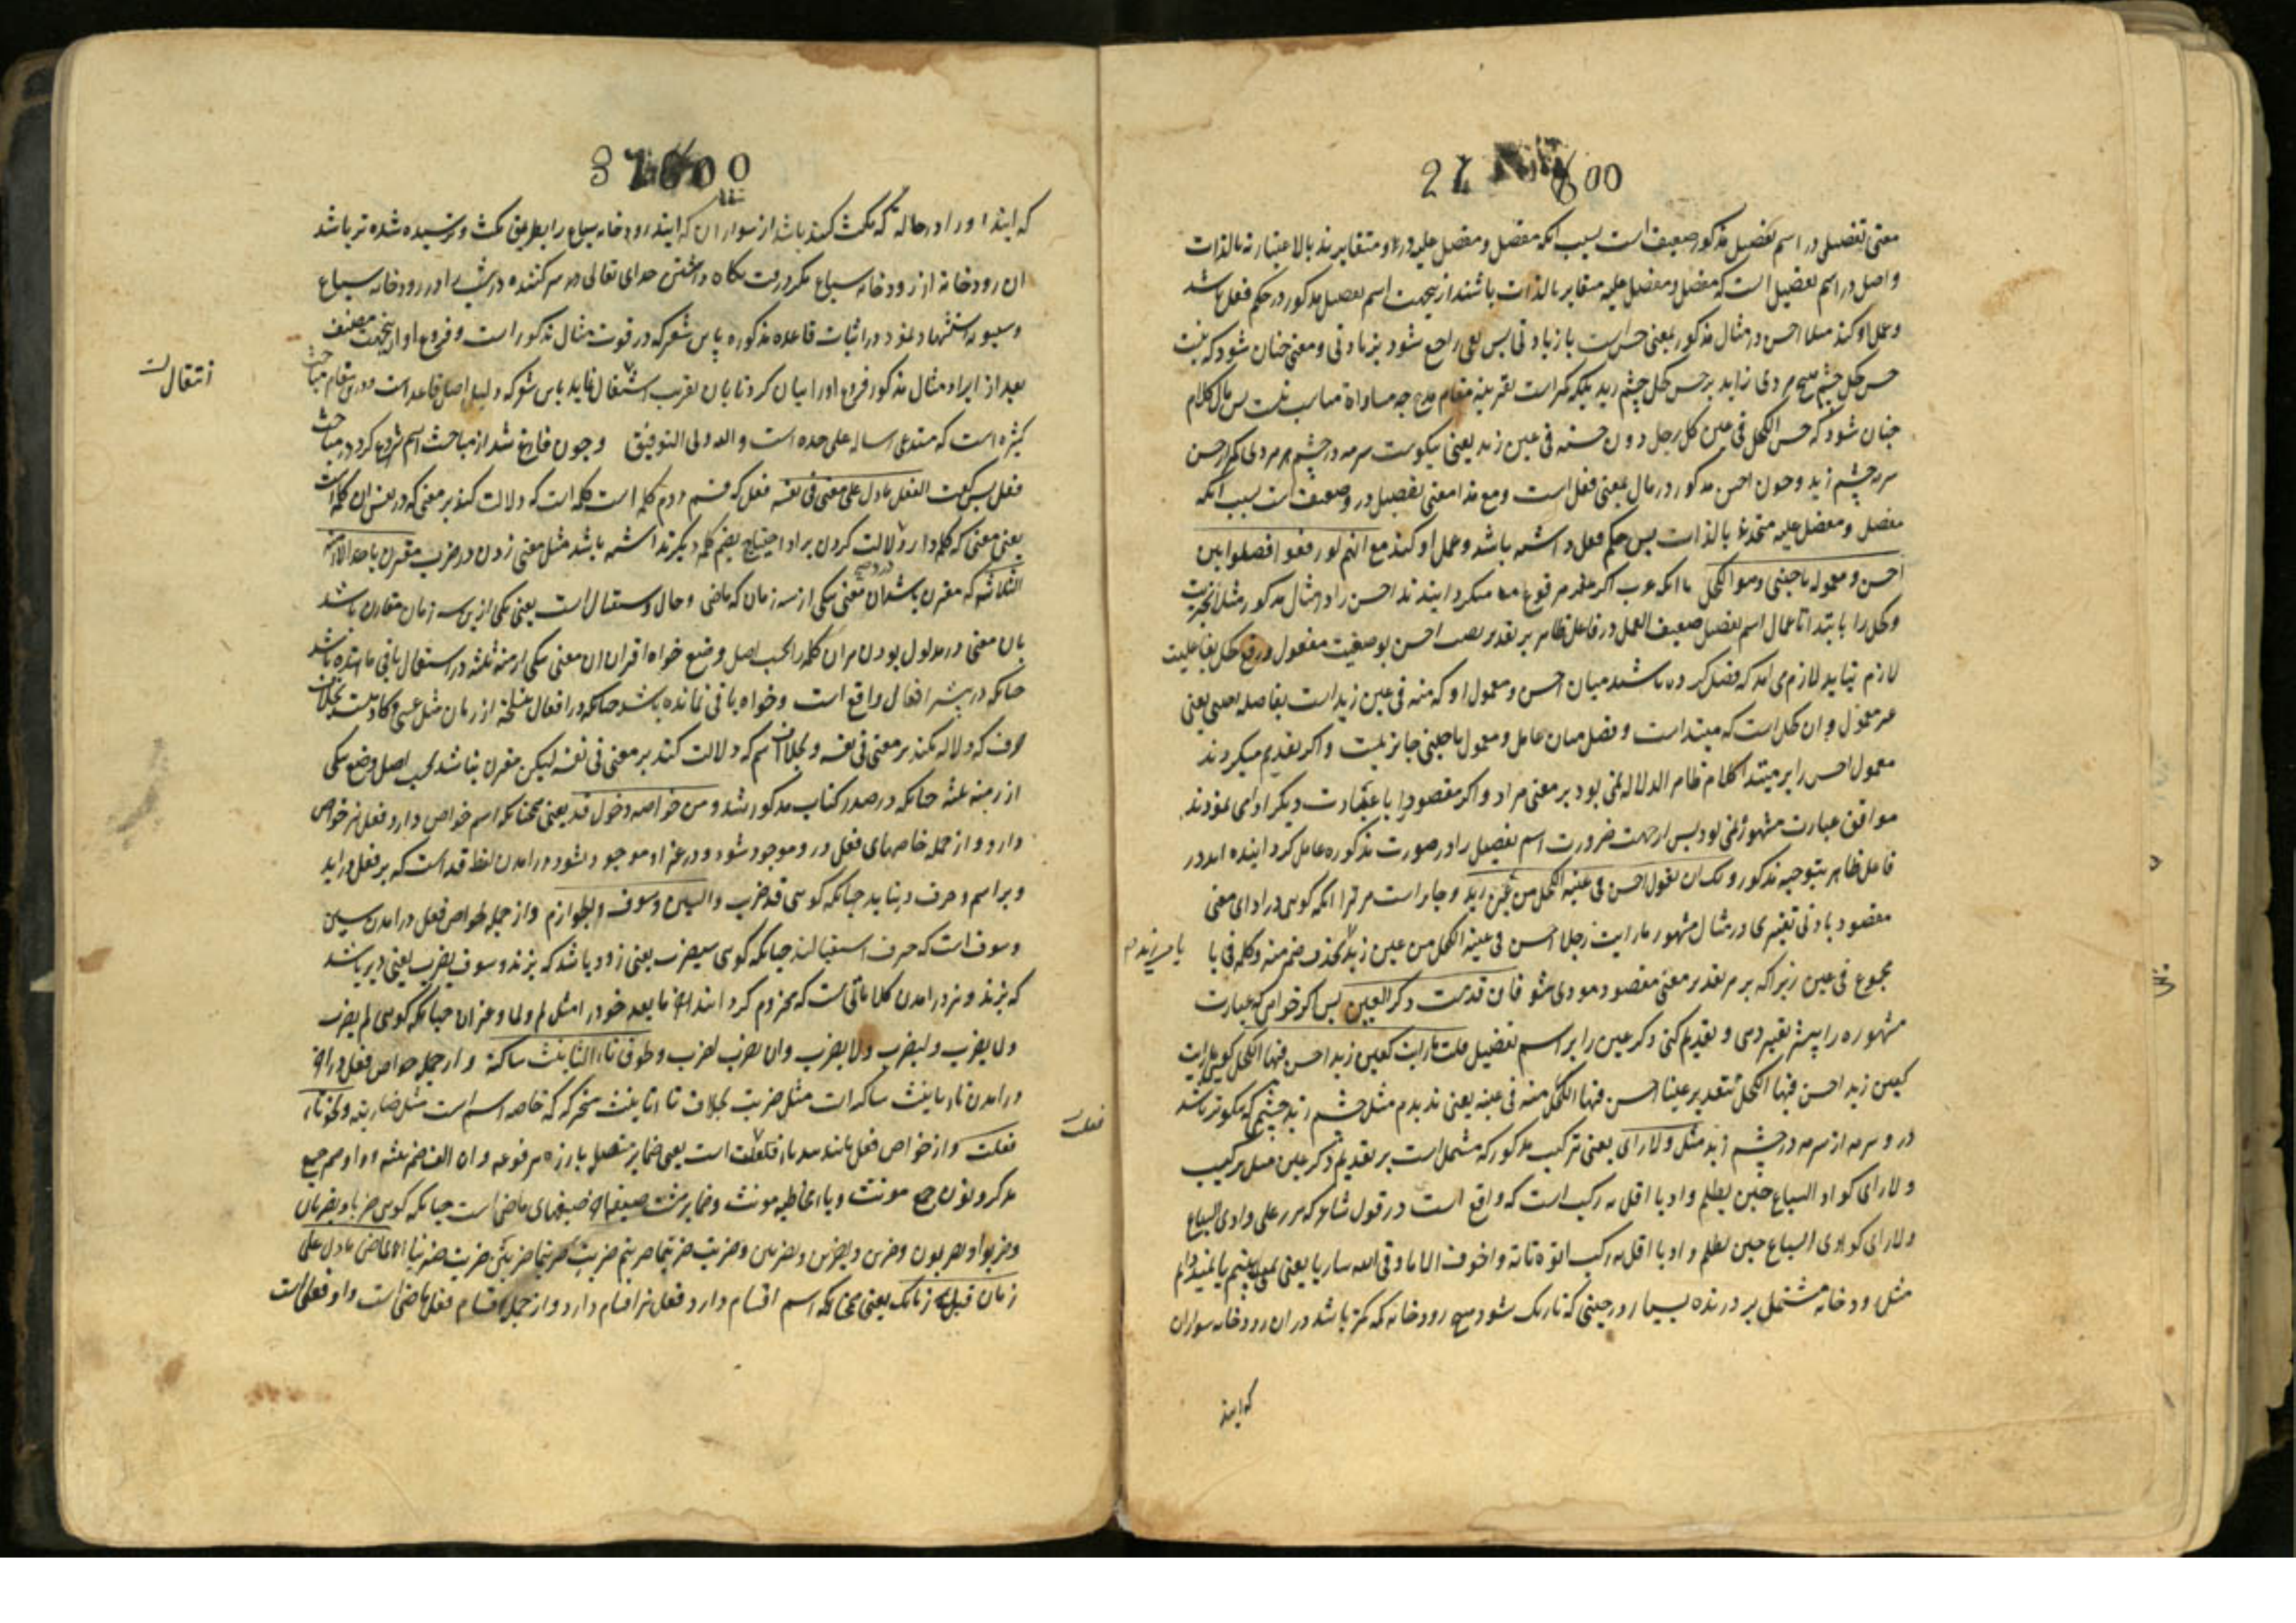 معنی تفضیل در اسم تفضیل مذکور ضعیف است بسبب انکه مفضل و مفضل علیه درو متغایرند بالاعتبار نه بالذات
و اصل در اسم تفضیل انست که مفضل و مفضل علیه متغایر بالذات باشند ازینجهت اسم تفضیل مذکور در حکم فعل باشد
و عمل او کند مثلا احسن در مثال مذکور بمعنی حسن است با زیادتی پس نفی راجع شود بزیادتی و معنی چنان شود که نیست
حسن کحل چشم هیچ مردی زاید بر حسن کحل چشم زید بلکه کمتر است بقرینه مقام مدح چه مساواة مناسب نیست پس مال کلام
چنان شود که حسن الکحل فی عین کل رجل دون حسنه فی عین زید یعنی نیکوست سرمه در چشم هر مردی کم از حسن
سرمه چشم زید و چون احسن مذکور در مال بمعنی فعل است و مع هذا معنی تفضیل درو ضعیف است بسبب انکه
مفضل و مفضل علیه متحدند بالذات پس حکم فعل داشته باشد و عمل او کند مع انهم لو رفعوا لفصلوا بین
احسن و معموله باجنبی و هو الکحل با انکه عرب اگر مرفوع میکردانیدند احسن را در مثال مذکور مثلا بخبریت
و کحل را بابتدا تا اعمال اسم تفضیل ضعیف العمل در فاعل ظاهر بر تقدیر نصب احسن بوصفیت مفعول و رفع کحل بفاعلیت
لازم نیاید لازم می اید که فصل کرده باشند میان احسن و معمول او که منه فی عین زید است بفاصله اجنبی یعنی
غیر معمول و ان کحل است که مبتدا است و فصل میان عامل و معمول باجنبی جایز نیست و اگر تقدیم میکردند
معمول احسن را بر مبتدا کلام ظاهر الدلاله نمی بود بر معنی مراد و اگر مقصود را با عبارت دیگر ادا می نمودند
موافق عبارت مشهور نمی بود پس از جهت ضرورت اسم تفضیل را در صورت مذکوره عامل کردانیده اند در
فاعل ظاهر بتوجیه مذکور و لک ان تقول احسن فی عینه الکحل من عین زید و جایز است مر ترا انکه کوئی در ادای معنی
مقصود بادنی تغییری در مثال مشهور ما رایت رجلا احسن فی عینه الکحل من عین زید بحذف ضمیر منه و کلمه فی یا
مجموع فی عین زیرا که بر هر تقدیر معنی مقصود مودی شود فان قدمت ذکر العین پس اگر خواهی که عبارت
مشهوره را بیشتر تغییر دهی و تقدیم کنی ذکر عین را بر اسم تفضیل قلت ما رایت کعین زید احسن فیها الکحل کوئی ما رایت
کعین زید احسن فیها الکحل بتقدیر عینا احسن فیها الکحل منه فی عینه یعنی ندیدم مثل چشم زید چشمی که نیکوتر باشد
درو سرمه از سرمه در چشم زید مثل و لا اری یعنی ترکیب مذکور که مشتمل است بر تقدیم ذکر عین مثل ترکیب
و لا اری کواد السباع حین یظلم وادیا اقل به رکب است که واقع است در قول شاعر که مررت علی وادی السباع
و لا اری کوادی السباع حین یظلم وادیا اقل به رکب اتوه تایة و اخوف الا ما وقی الله ساریا یعنی
مثل رودخانه مشتمل بر درنده بسیار در حینی که تاریک شود هیچ رودخانه که کمتر باشد دران رودخانه سواران
که ایند
که ایند او را در حالة که مکث کننده باشد از سواران که ایند رودخانه سباع را بطریق مکث و ترسیده شده تر باشد
ان رودخانه از رودخانه سباع مکر در وقت نگاه داشتن خدای تعالی هر سیر کننده در شب را در رودخانه سباع
و سیبویه استشهاد نمود در اثبات قاعده مذکوره باین شعر که در قوت مثال مذکور است و فروع او ازینجهت مصنف
بعد از ایراد مثال مذکور فروع او را بیان کرد تا بان تقریب انتقال نماید باین شعر که دلیل اصل قاعده است و درین مقام مباحث
کثیره است که مستدعی رساله علی حده است والله ولی التوفیق و چون فارغ شد از مباحث اسم شروع کرد در مباحث
فعل پس گفت الفعل ما دل علی معنی فی نفسه فعل که قسم دوم کلمه است کلمه است که دلالت کند بر معنی که در نفس ان کلمه است
یعنی معنی که کلمه را در دلالت کردن برو احتیاج بضم کلمه دیگر نداشته باشد مثل معنی زدن در ضرب مقترن باحد الازمنة
الثلاثة که مقترن باشد ان معنی بیکی از سه زمان که ماضی و حال و استقبال است یعنی یکی ازین سه زمان مقارن باشد
بان معنی در مدلول بودن مر ان کلمه را بحسب اصل وضع خواه اقتران ان معنی بیکی از ازمنه ثلثه در استعمال باقی مانده باشد
چنانکه در بیشتر افعال واقع است و خواه باقی نمانده باشد چنانکه در افعال منسلخه از زمان مثل عسی و کاد است بخلاف
حرف که دلاله نکند بر معنی فی نفسه و بخلاف اسم که دلالت کند بر معنی فی نفسه لیکن مقترن نباشد بحسب اصل وضع بیکی
از ازمنه ثلثه چنانکه در صدر کتاب مذکور شد و من خواصه دخول قد یعنی همچنانکه اسم خواص دارد فعل نیز خواص
دارد و از جمله خاصهای فعل که درو موجود شود و در غیر او موجود نشود در امدن لفظ قد است که بر فعل در اید
و بر اسم و حرف در نیاید چنانکه کوئی قد ضرب والسین و سوف والجوازم و از جمله خواص فعل در امدن سین
و سوف است که حرف استقبالند چنانکه کوئی سیضرب یعنی زود باشد که بزند و سوف یضرب یعنی دیر باشد
که بزند و نیز در امدن کلماتی است که مجزوم کردانند اخر ما بعد خود را مثل لم و لما و غیر ان چنانکه کوئی لم یضرب
و لما یضرب و لیضرب و لا یضرب و ان تضرب اضرب و لحوق تاء التانیث ساکنة و از جمله خواص فعل در اخر
در امدن تاء تانیث ساکنه است مثل ضربت بخلاف تاء تانیث متحرکه که خاصه اسم است مثل ضاربة و نحو تاء
فعلت و از خواص فعل مانند تاء فعلت است یعنی ضمایر متصله بارزه مرفوعه و ان الف ضمیر تثنیه و واو ضمیر جمع
مذکر و نون جمع مونث و یاء مخاطبه مونث و ضمایر صیغهای ماضی است چنانکه کوئی ضربا و یضربان
و ضربوا و یضربون و ضربن و یضربن و تضربین و ضربت ضربتما ضربتم ضربت ضربتما ضربتن ضربت ضربنا الماضی ما دل علی
زمان قبل زمانک یعنی همچنانکه اسم اقسام دارد فعل نیز اقسام دارد و از جمله اقسام فعل ماضی است و او فعلی است
انتقال
فعلت